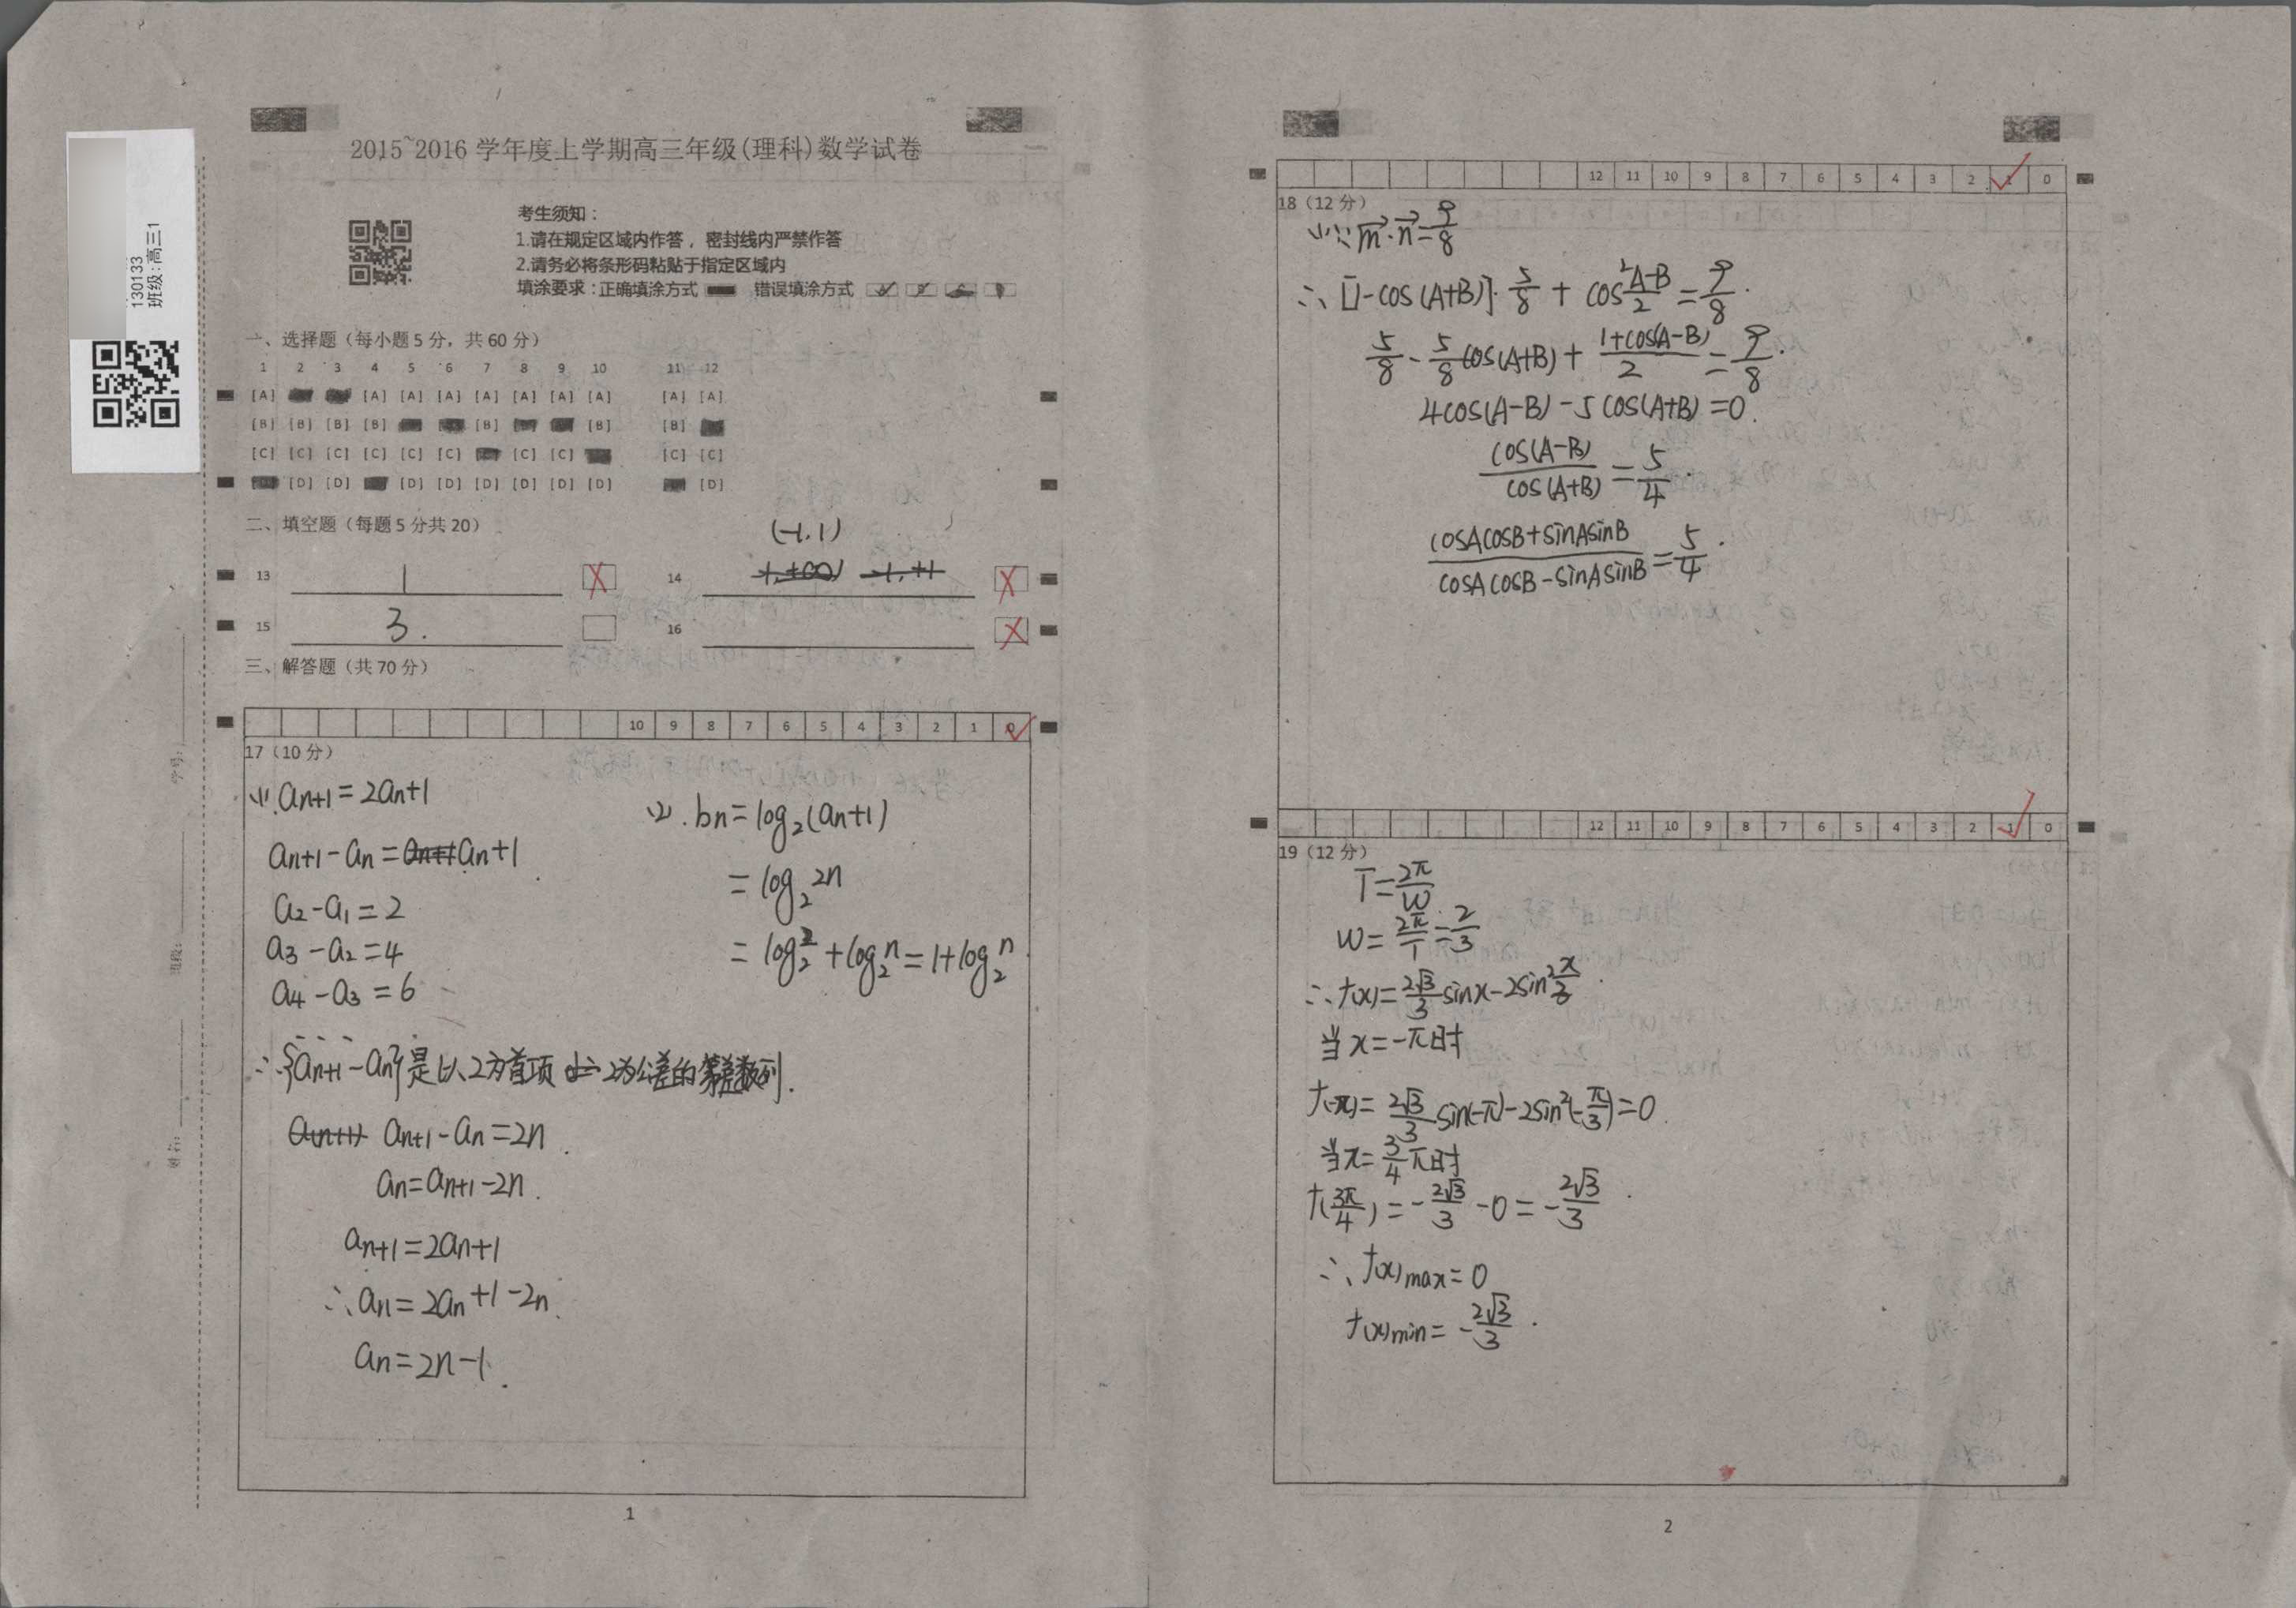 130133
班级:高三1
学号:
班级:
姓名:
2015~2016 学年度上学期高三年级(理科)数学试卷
考生须知:
1.请在规定区域内作答,密封线内严禁作答
2.请务必将条形码粘贴于指定区域内
填涂要求:正确填涂方式 错误填涂方式
一、选择题(每小题5分,共60分)
1 2 3 4 5 6 7 8 9 10 11 12
[A] [A] [A] [A] [A] [A] [A] [A] [A] [A]
[B] [B] [B] [B] [B] [B] [B]
[C] [C] [C] [C] [C] [C] [C] [C] [C] [C]
[D] [D] [D] [D] [D] [D] [D] [D] [D]
二、填空题(每题5分共20)
(-1,1)
13 1 14
15 3. 16
三、解答题(共70分)
10 9 8 7 6 5 4 3 2 1 0
17(10分)
(1) an+1=2an+1
an+1-an=an+1
a2-a1=2
a3-a2=4
a4-a3=6
∴{an+1-an}是以2为首项 2为公差的等差数列.
an+1-an=2n.
an=an+1-2n.
an+1=2an+1
∴an=2an+1-2n.
an=2n-1.
(2).bn=log2(an+1)
=log2 2n
=log2 2+log2 n=1+log2 n
1
12 11 10 9 8 7 6 5 4 3 2 1 0
18(12分)
(1)∵m·n=9/8
∴[1-cos(A+B)]·5/8+cos²(A-B)/2=9/8.
5/8-5/8cos(A+B)+(1+cos(A-B))/2=9/8.
4cos(A-B)-5cos(A+B)=0.
cos(A-B)/cos(A+B)=5/4.
(cosAcosB+sinAsinB)/(cosAcosB-sinAsinB)=5/4.
12 11 10 9 8 7 6 5 4 3 2 1 0
19(12分)
T=2π/W
W=2π/T=2/3
∴f(x)=2√3/3 sinx-2sin²x/3.
当x=-π时
f(-π)=2√3/3 sin(-π)-2sin²(-π/3)=0
当x=3/4π时
f(3π/4)=-2√3/3-0=-2√3/3.
∴f(x)max=0
f(x)min=-2√3/3.
2